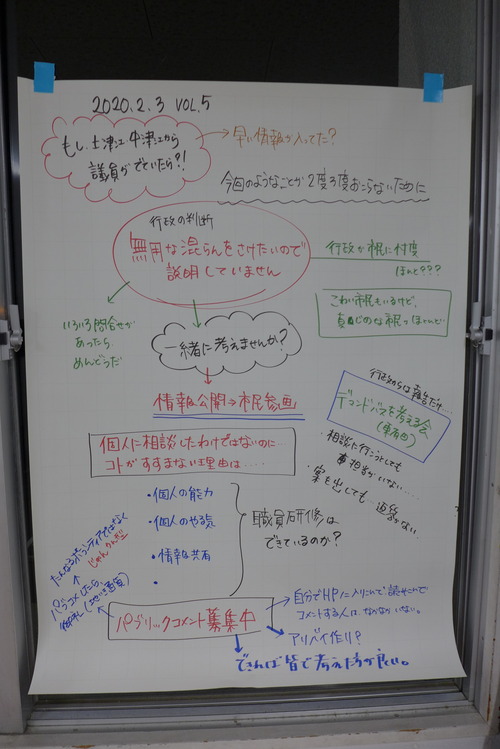 2020.2.3 VOL.5
もし、上津江 中津江から
議員がでていたら?!
→早い情報が入ってた?
今回のようなことが2度3度おこらないために
行政の判断
無用な混らんをさけたいので
説明していません
行政が市民に忖度
ほんと???
こわい市民もいるけど、
いろいろ問合せが
あったら、
めんどうだ
一緒に考えませんか?
情報公開→市民参画
行政からは報告だけ…
デマンドバスを考える会
個人に相談したわけではないのに…
コトがすすまない理由は‥‥‥
・相談に行こうとしても
担当がいない‥‥
・案を出しても、返答がない‥
・個人の能力
・個人のやる気
・情報共有
・
職員研修は
できているのか?
たんなるボランティアではなく
じゃんけんだ
パブコメしたら、
パブリックコメント募集中
自分でHPに入りこんで読みこんで
コメントする人は、なかなかいない。
アリバイ作り?
できれば皆で考えた方が良い。